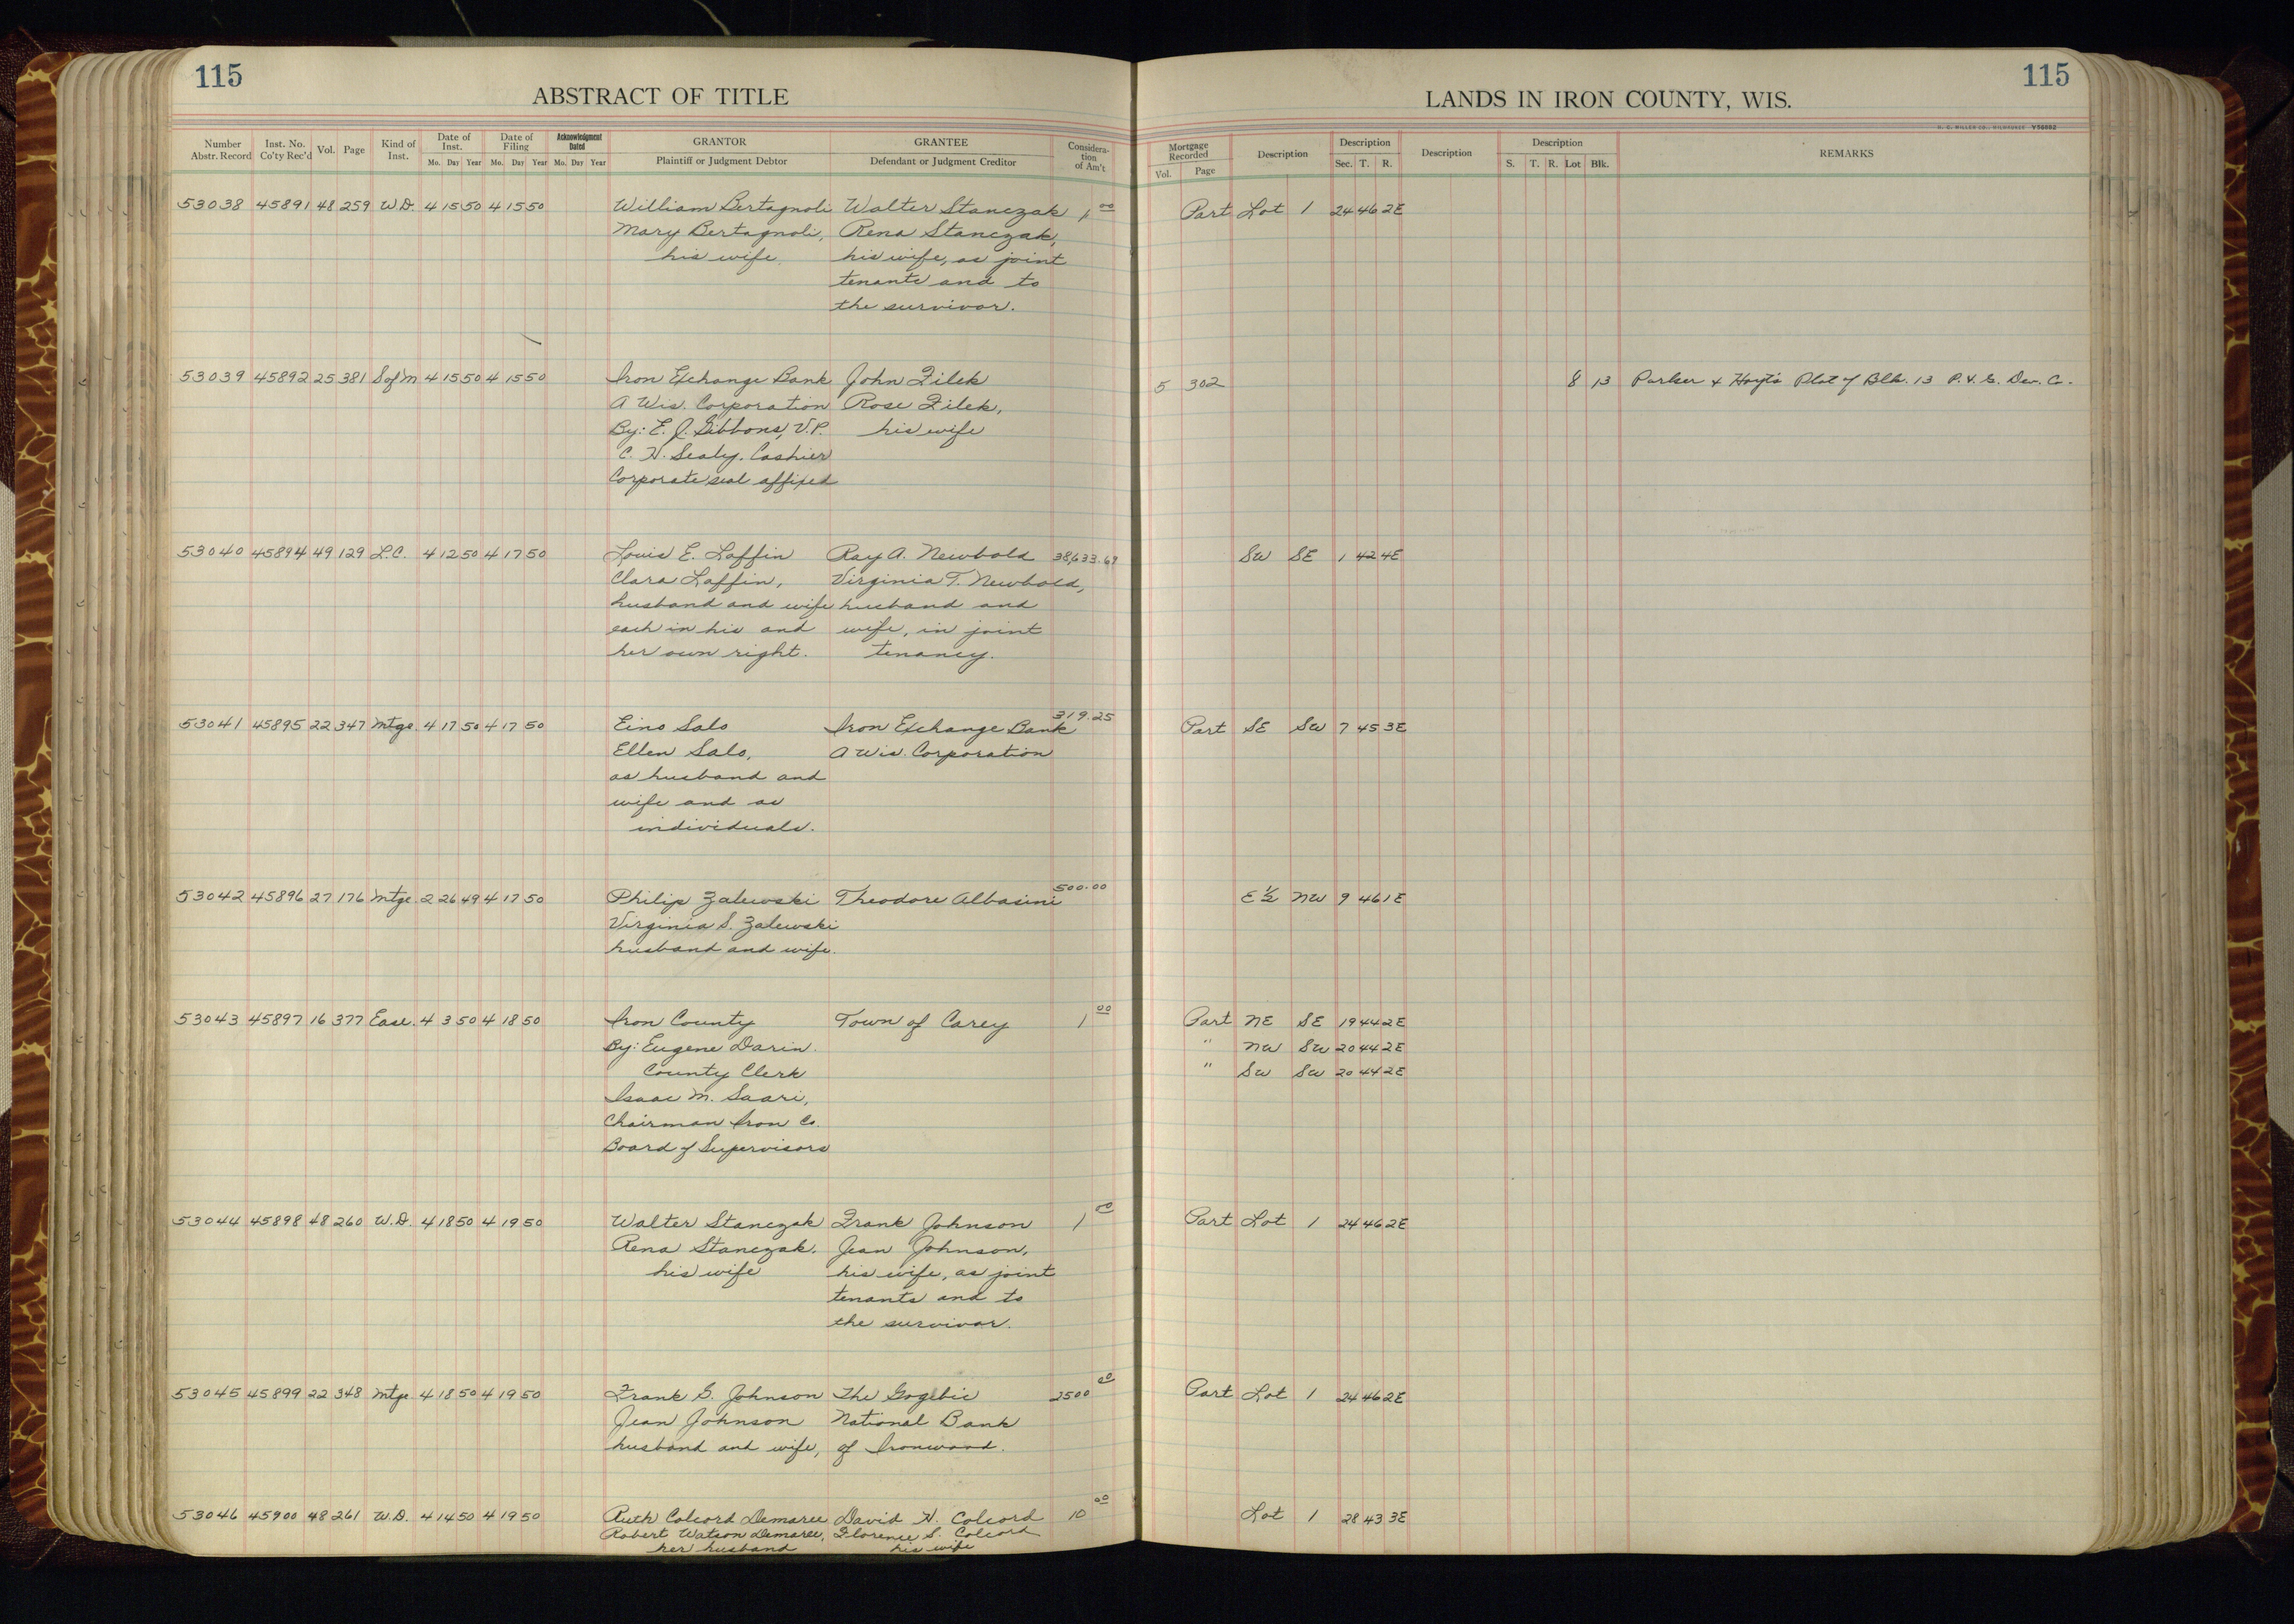 115
ABSTRACT OF TITLE
Number Abstr. Record | Inst. No. Co'ty Rec'd | Vol. | Page | Kind of Inst. | Date of Inst. Mo. Day Year | Date of Filing Mo. Day Year | Acknowledgment Dated Mo. Day Year | GRANTOR Plaintiff or Judgment Debtor | GRANTEE Defendant or Judgment Creditor | Consideration of Am't
53038 45891 48 259 W.D. 4 15 50 4 15 50 William Bertagnoli Walter Stanczak 1 00
Mary Bertagnoli, Rena Stanczak,
his wife. his wife, as joint
tenants and to
the survivor.
53039 45892 25 381 S of M 4 15 50 4 15 50 Iron Exchange Bank John Zilek
A Wis. Corporation Rose Zilek,
By: E. J. Gibbons, V.P. his wife
C. H. Sealy. Cashier
Corporate seal affixed
53040 45894 49 129 L.C. 4 12 50 4 17 50 Louis E. Laffin Ray A. Newbold 38,633.69
Clara Laffin, Virginia T. Newbold,
husband and wife husband and
each in his and wife, in joint
her own right. tenancy.
53041 45895 22 347 Mtge. 4 17 50 4 17 50 Eino Salo Iron Exchange Bank 319.25
Ellen Salo, A Wis. Corporation
as husband and
wife and as
individuals.
53042 45896 27 176 Mtge 2 26 49 4 17 50 Philip Zalewski Theodore Albasini 500.00
Virginia S. Zalewski
husband and wife.
53043 45897 16 377 Ease. 4 3 50 4 18 50 Iron County Town of Carey 1 00
By: Eugene Darin.
County Clerk
Isaac M. Saari,
Chairman Iron Co.
Board of Supervisors
53044 45898 48 260 W.D. 4 18 50 4 19 50 Walter Stanczak Frank Johnson 1 00
Rena Stanczak. Jean Johnson,
his wife his wife, as joint
tenants and to
the survivor.
53045 45899 22 348 Mtge 4 18 50 4 19 50 Frank G. Johnson The Gogebic 2500 00
Jean Johnson National Bank
husband and wife, of Ironwood.
53046 45900 48 261 W.D. 4 14 50 4 19 50 Ruth Colcord Demaree David H. Colcord 10 00
Robert Watson Demaree, Florence S. Colcord
her husband his wife
115
LANDS IN IRON COUNTY, WIS.
H. C. MILLER CO., MILWAUKEE Y58882
Mortgage Recorded Vol. Page | Description | Description Sec. T. R. | Description | Description S. T. R. Lot Blk. | REMARKS
Part Lot 1 24 46 2E
5 302 8 13 Parker & Hoyt's Plat of Blk. 13 P. & G. Dev. Co.
SW SE 1 42 4E
Part SE SW 7 45 3E
E ½ NW 9 46 1E
Part NE SE 19 44 2E
" NW SW 20 44 2E
" SW SW 20 44 2E
Part Lot 1 24 46 2E
Part Lot 1 24 46 2E
Lot 1 28 43 3E